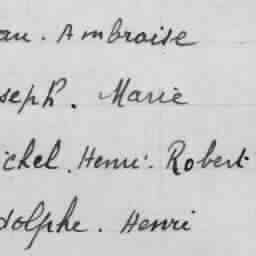 au. Ambroise
seph. Marie
ichel. Henri. Robert
dolphe. Henri